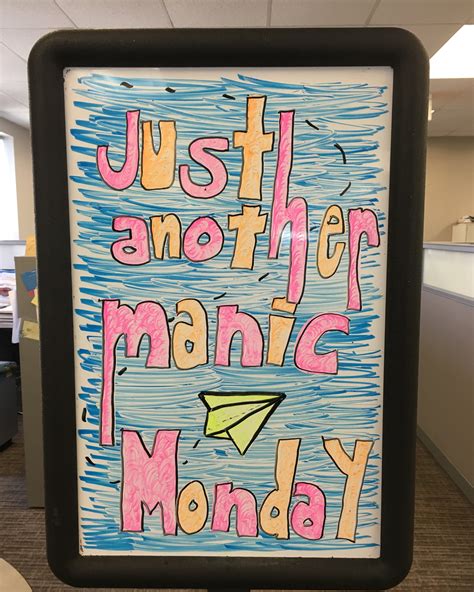 Just
another
manic
Monday